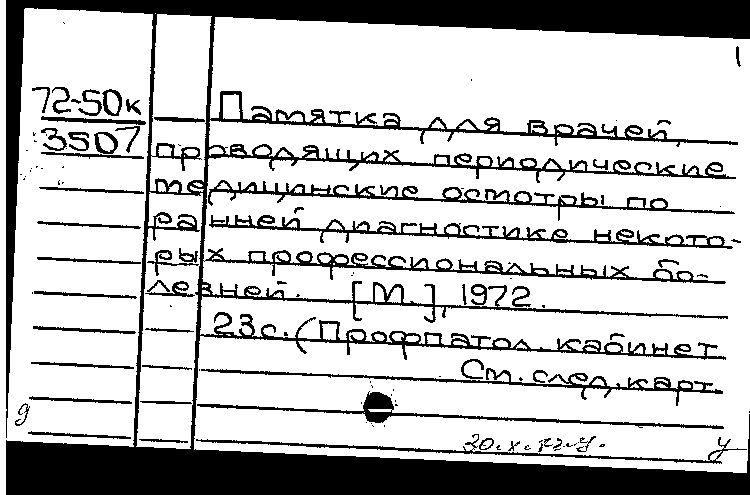 1
72-50к
3507
Памятка для врачей,
проводящих периодические
медицинские осмотры по
ранней диагностике некото-
рых профессиональных бо-
лезней. [М.], 1972.
23с. (Профпатол. кабинет
См. след. карт.
g
у